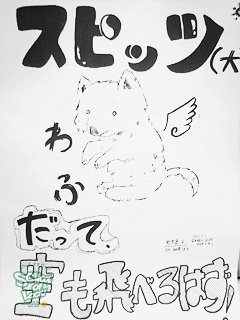 スピッツ(大
わふ
だって、
空も飛べるはず!